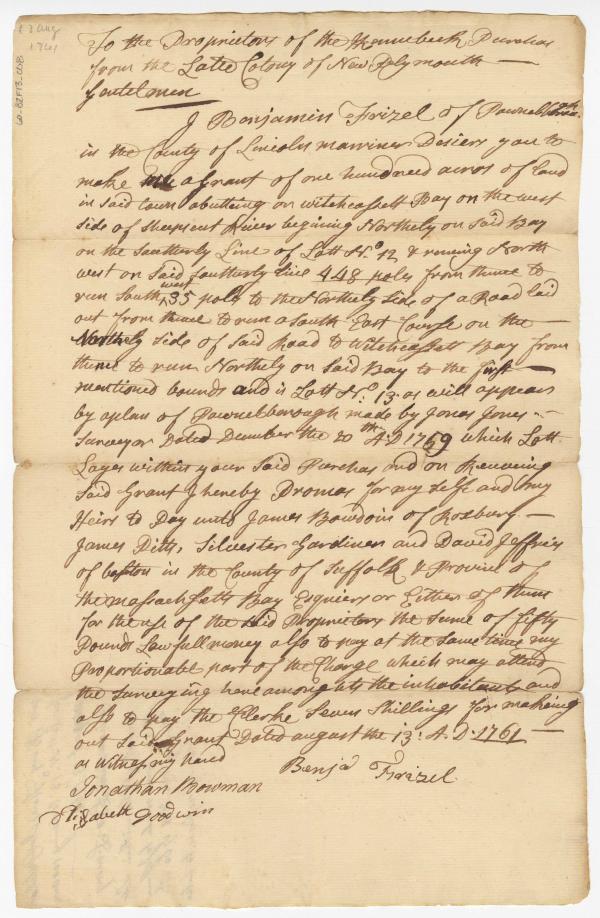 13 Aug
1761
To the Proprietors of the Kennebeck Purchas
from the Late Colony of New Plymouth
Gentelmen
I Benjamin Frizel of Pownalborough
in the County of Lincoln marriner Desiers you to
make me a Grant of one hundred acres of land
in said town abutting on witchcassett Bay on the west
side of Sheepscut River begining Northely on said Bay
on the southerly Line of Lott No. 12 & runing North
west on said southerly line 448 poles from thence to
run South west 35 poles to the Northely side of a Road laid
out from thence to run a South East Course on the
Northely side of said Road to Witchcassett Bay from
thence to run Northely on said Bay to the first
mentioned bounds and is Lott No. 13 as will appear
by a plan of Pownalborough made by Jonas Jones
Surveyor Dated December the 20th A:D 1759 which Lott
Layes within your said Purchas and on Receiving
said Grant I hereby Promas for my self and my
Heirs to Pay unto James Bowdoin of Roxbury
James Pitts, Silvester Gardiner and David Jeffries
of boston in the County of Suffolk & Province of
the massachsetts Bay Esquiers or Either of them
for the use of the said Proprietors the sume of fifty
Pounds Lawfull money also to pay at the same time my
Proportionable part of the Charge which may attend
the surveying here amongsts the inhabitants and
also to pay the Clerke Seven Shillings for makeing
out said Grant Dated august the 13: A.D. 1761
as witness my hand
Benja Frizel
Jonathan Bowman
Elizabeth Goodwin